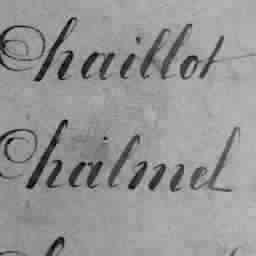 Chaillot
Chalmel